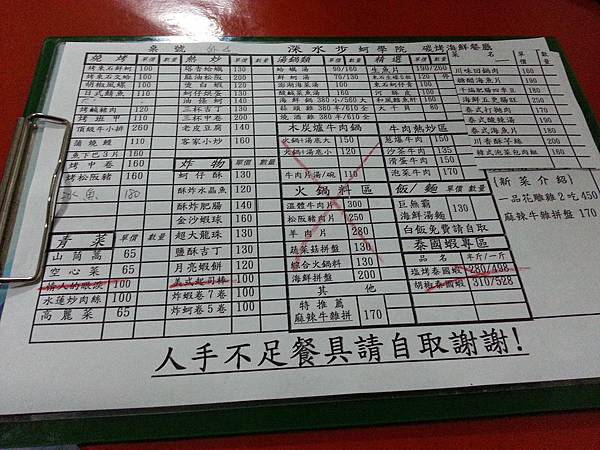 桌號 深水步蚵學院 碳烤海鮮餐廳
燒烤 單價 數量
烤東石鮮蚵
烤東石文蛤 100
胡椒鳳螺 100
日式鯖魚 110
烤鹹豬肉 120
烤班甲 110
頂級牛小排 260
蒲燒鰻
魚下巴3片 160
烤中卷
烤松阪豬 160
冰魚 180
青菜 單價 數量
山茼蒿 65
空心菜 65
情人的眼淚 100
水蓮炒肉絲 100
高麗菜 65
熱炒 單價 數量
塔香蛤蠣 130
麻油松阪 200
燙白蝦 200
蚵仔煎蛋 130
油條蚵 140
三杯杏丁 130
三杯中卷 200
老皮豆腐 140
客家小炒 160
炸物 單價 數量
蚵仔酥 130
酥炸水晶魚 120
酥炸肥腸 140
金沙蝦球 160
超大龍珠 130
鹽酥杏丁 130
月亮蝦餅 120
美式起司棒 100
炸蝦卷7卷 100
炸蚵卷5卷 100
湯鍋類 單價 數量
蛤蠣湯 90/100
鮮蚵湯 70/130
澎湖海菜湯 100
海鮮鍋 380小/560大
燒酒雞 380半/610全
木炭爐牛肉鍋
火鍋+湯底大 150
火鍋+湯底小 120
牛肉片湯/碗 110
火鍋料區
溫體牛肉片 300
松阪豬肉片 250
羊肉片 280
蔬菜菇拼盤 130
綜合火鍋料 130
海鮮拼盤 200
其他
特推薦
麻辣牛雜拼 170
精選 單價 數量
生魚片 190/260
和風鱈魚肝 160
大干貝
牛肉熱炒區
蔥爆牛肉 150
沙茶牛肉 150
滑蛋牛肉 150
泡菜牛肉 170
飯/麵 單價 數量
巨無霸
海鮮湯麵 130
白飯免費請自取
泰國蝦專區
品名 半斤/一斤
塩烤泰國蝦 280/498
胡椒泰國蝦 310/528
菜名 單價 數量
川味回鍋肉 160
糖醋海魚片 190
干煸肥腸四季豆 180
海鮮五更腸旺 250
泰式酸辣湯 190
泰式打拋肉 170
泰式海魚片 180
川香酥芋絲
韓式泡菜包肉組 160
〔新菜介紹〕
一品花雕雞2吃 450
麻辣牛雜拼盤 170
人手不足餐具請自取謝謝!